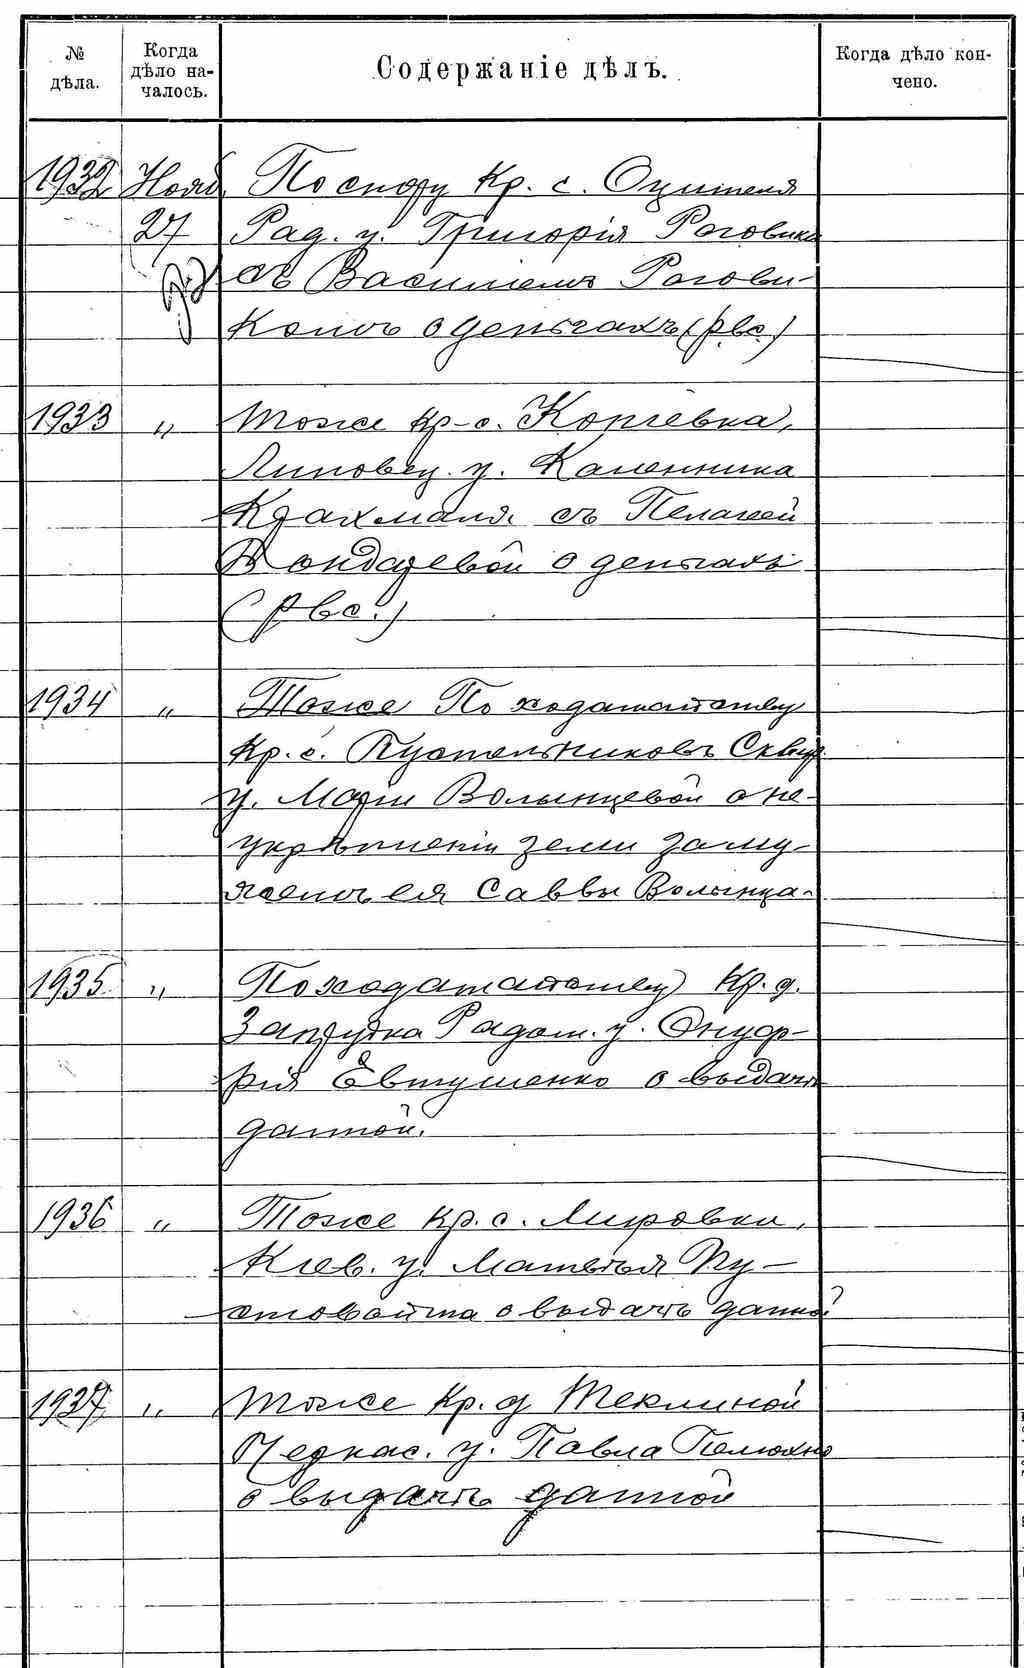 № дѣла.
Когда дѣло на-
чалось.
Содержаніе дѣлъ.
Когда дѣло кон-
чено.
1932 Нояб. По спору Кр. с. Оцителя
27 Рад. у. Григорія Роговика
съ Василіемъ Рогови-
комъ о деньгахъ (рвс.)
1933 " Тоже кр. с. Копіевка,
Липовец. у. Каленника
Крахмаля съ Пелагеей
Бондаревой о деньгахъ
(рвс.)
1934 " Тоже По ходатайству
Кр. с. Пустельниковъ Сквир.
у. Маріи Волынцевой о не-
укрѣпленіи земли за му-
жемъ ея Саввы Волынца.
1935 " По ходатайству Кр. д.
Запрудка Радом. у. Онуф-
рія Евтушенко о выдачѣ
данной.
1936 " Тоже кр. с. Мировки,
Кіев. у. Матвѣя Пу-
стовойта о выдачѣ данной
1937 " Тоже Кр. д. Теклиной
Черкас. у. Павла
о выдачѣ данной